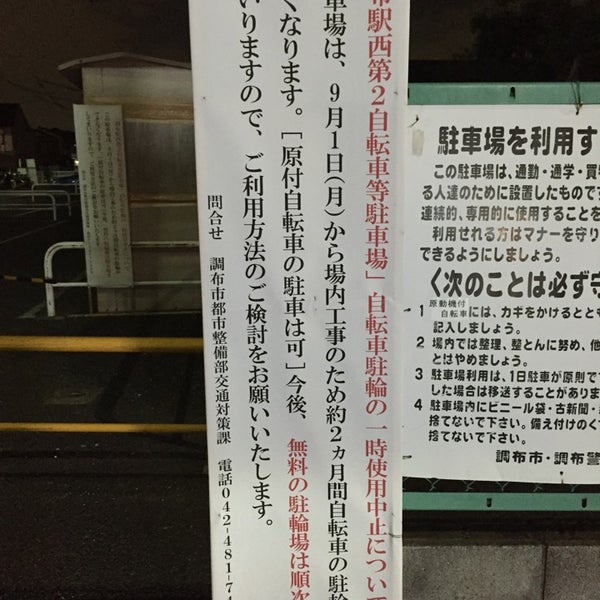 布駅西第2自転車等駐車場」自転車駐輪の一時使用中止につい
車場は、9月1日(月)から場内工事のため約2ヵ月間自転車の駐輪
くなります。[原付自転車の駐車は可]今後、無料の駐輪場は順次
いりますので、ご利用方法のご検討をお願いいたします。
問合せ 調布市都市整備部交通対策課 電話042-481-74
駐車場を利用す
この駐車場は、通勤・通学・買
る人達のために設置したもので
連続的、専用的に使用することを
利用せれる方はマナーを守り
できるようにしましょう。
〈次のことは必ず守
1 原動機付自転車には、カギをかけるととも
記入しましょう。
2 場内では整理、整とんに努め、他
とはやめましょう。
3 駐車場利用は、1日駐車が原則で
した場合は移送することがありま
4 駐車場内にビニール袋・古新聞・
捨てないで下さい。備え付けのく
捨てないで下さい。
調布市・調布警